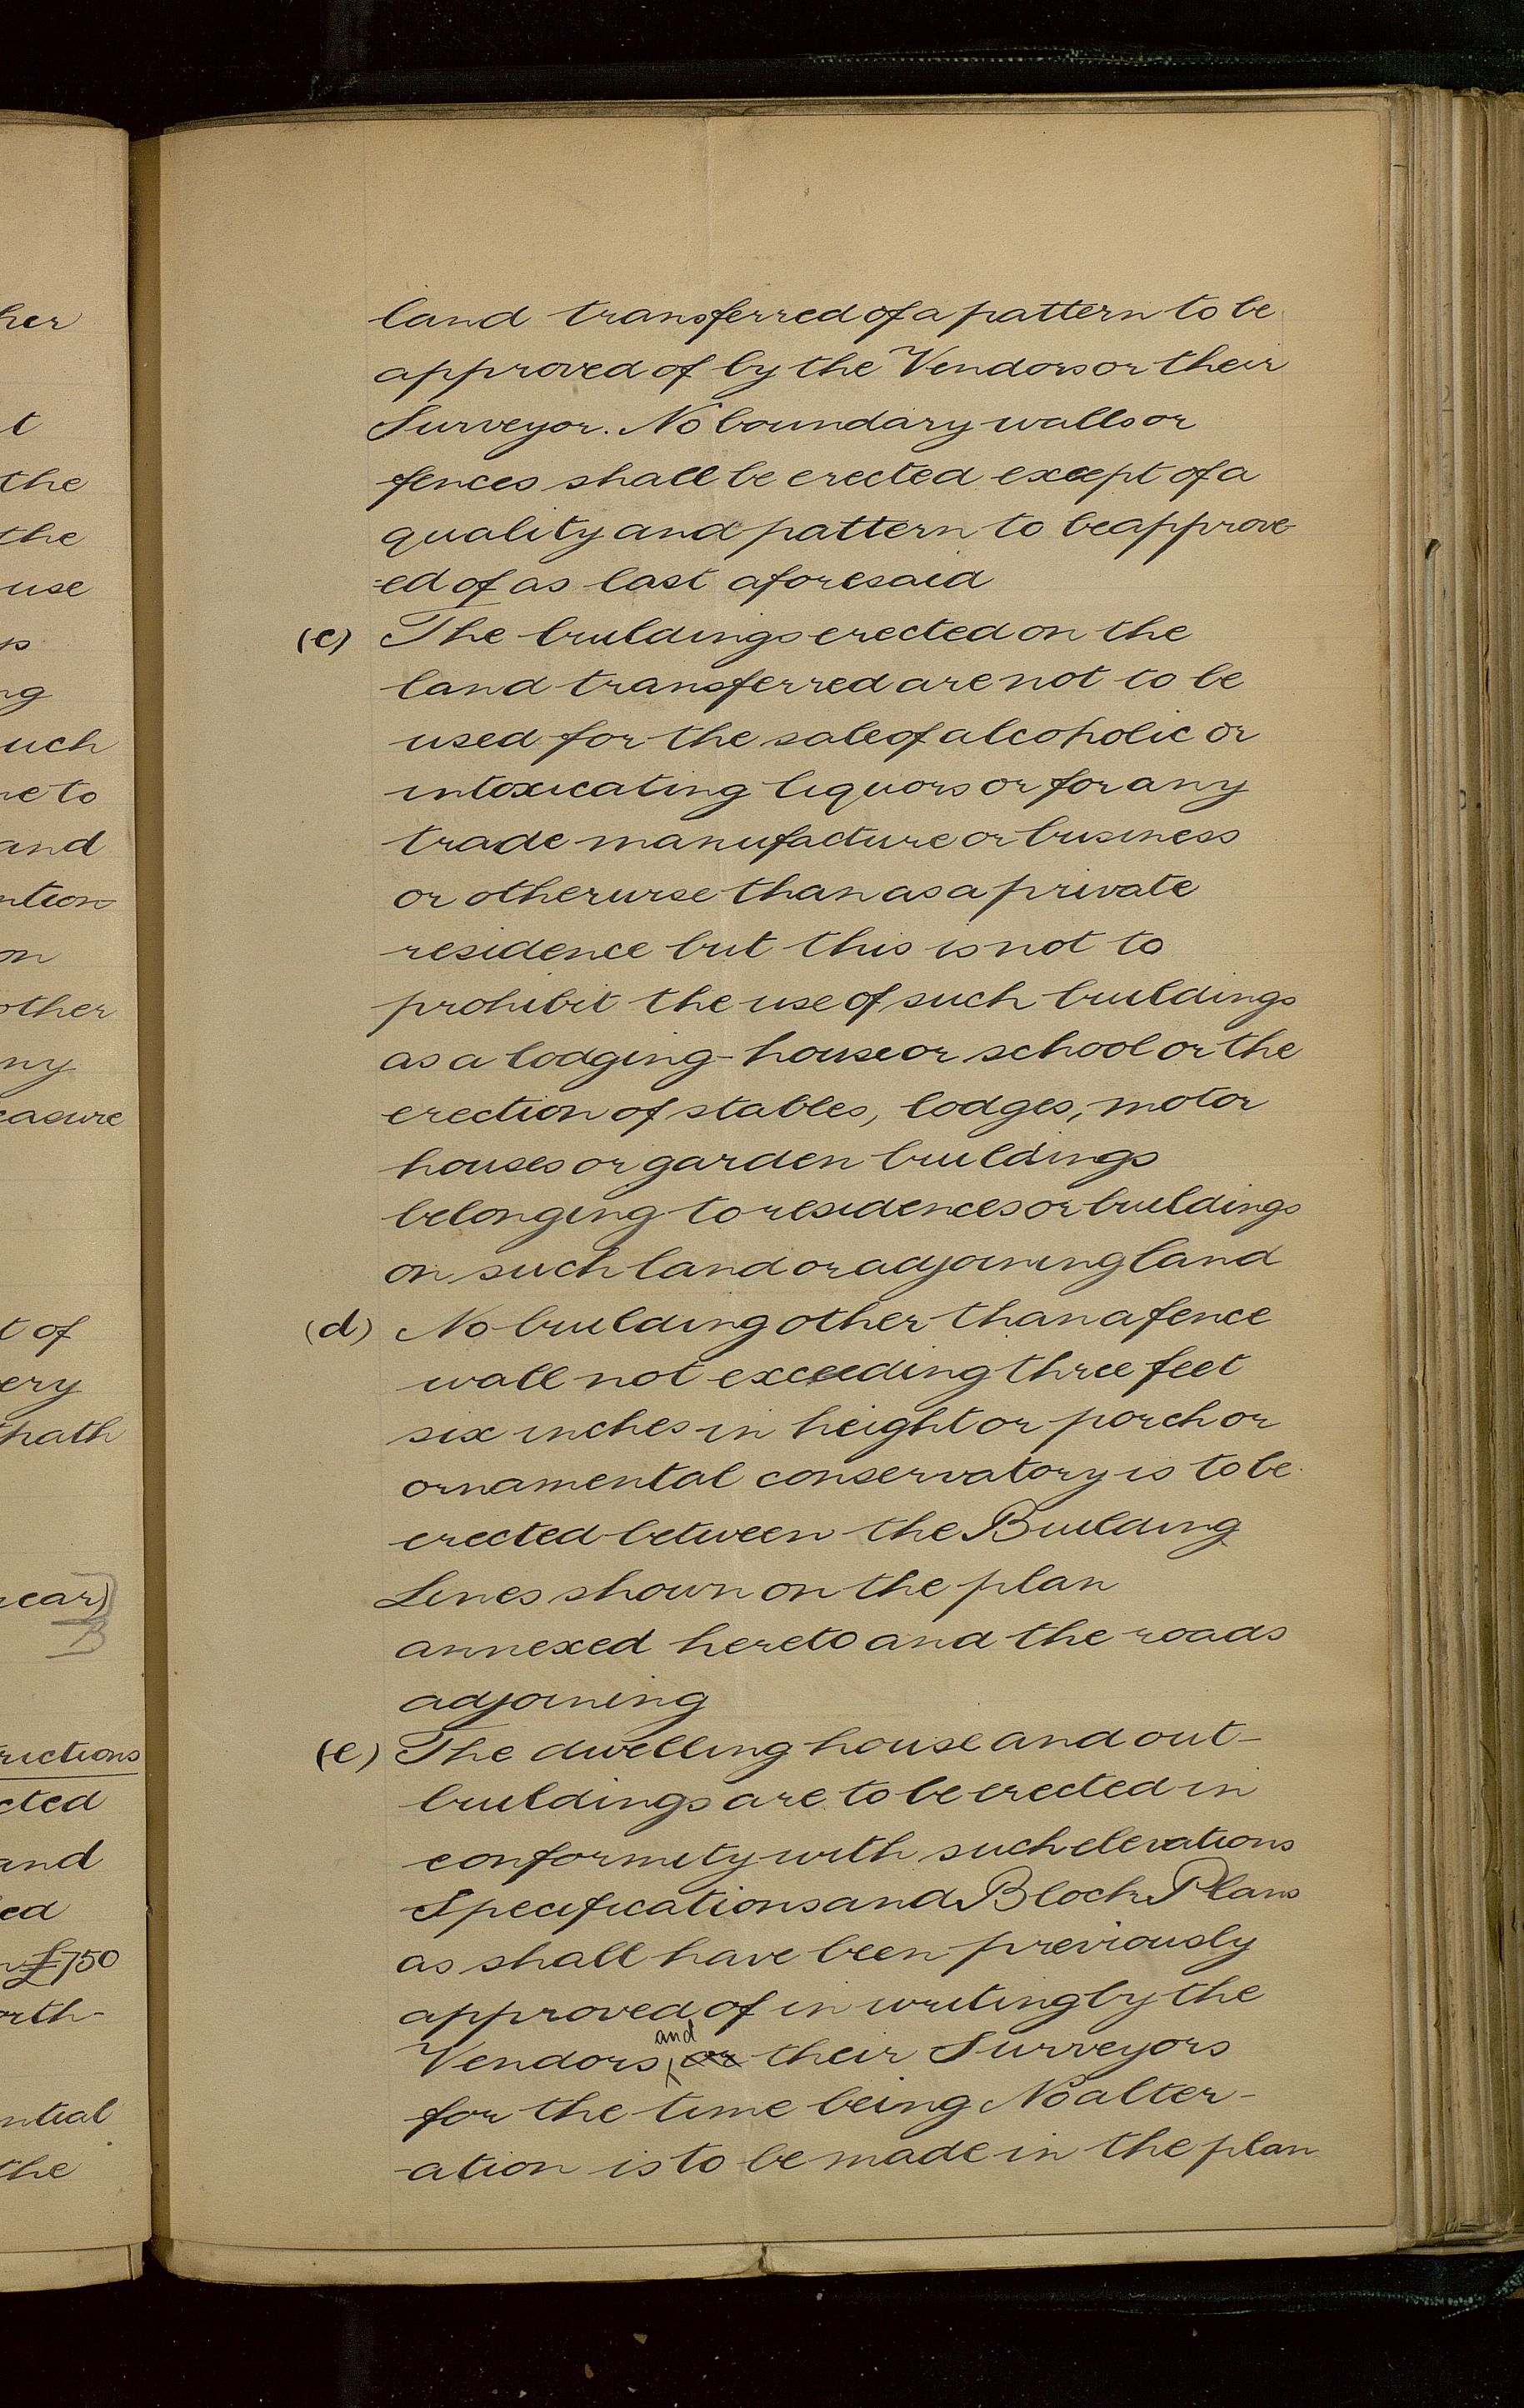 her
t
the
the
use
ng
uch
me to
and
ntion
on
other
ny
easure
t of
ery
path
near)
B
rictions
cted
and
ed
£750
orth-
ntial
the
land transferred of a pattern to be
approved of by the Vendors or their
Surveyor. No boundary walls or
fences shall be erected except of a
quality and pattern to be approve-
=ed of as last aforesaid
(c) The buildings erected on the
land transferred are not to be
used for the sale of alcoholic or
intoxicating liquors or for any
trade manufacture or business
or otherwise than as a private
residence but this is not to
prohibit the use of such buildings
as a lodging-house or school or the
erection of stables, lodges, motor
houses or garden buildings
belonging to residences or buildings
on such land or adjoining land
(d) No building other than a fence
wall not exceeding three feet
six inches in height or porch or
ornamental conservatory is to be
erected between the Building
Lines shown on the plan
annexed hereto and the roads
adjoining
(e) The dwelling house and out-
buildings are to be erected in
conformity with such elevations
Specifications and Block Plans
as shall have been previously
approved of in writing by the
and
Vendors or their Surveyors
for the time being No alter-
-ation is to be made in the plan